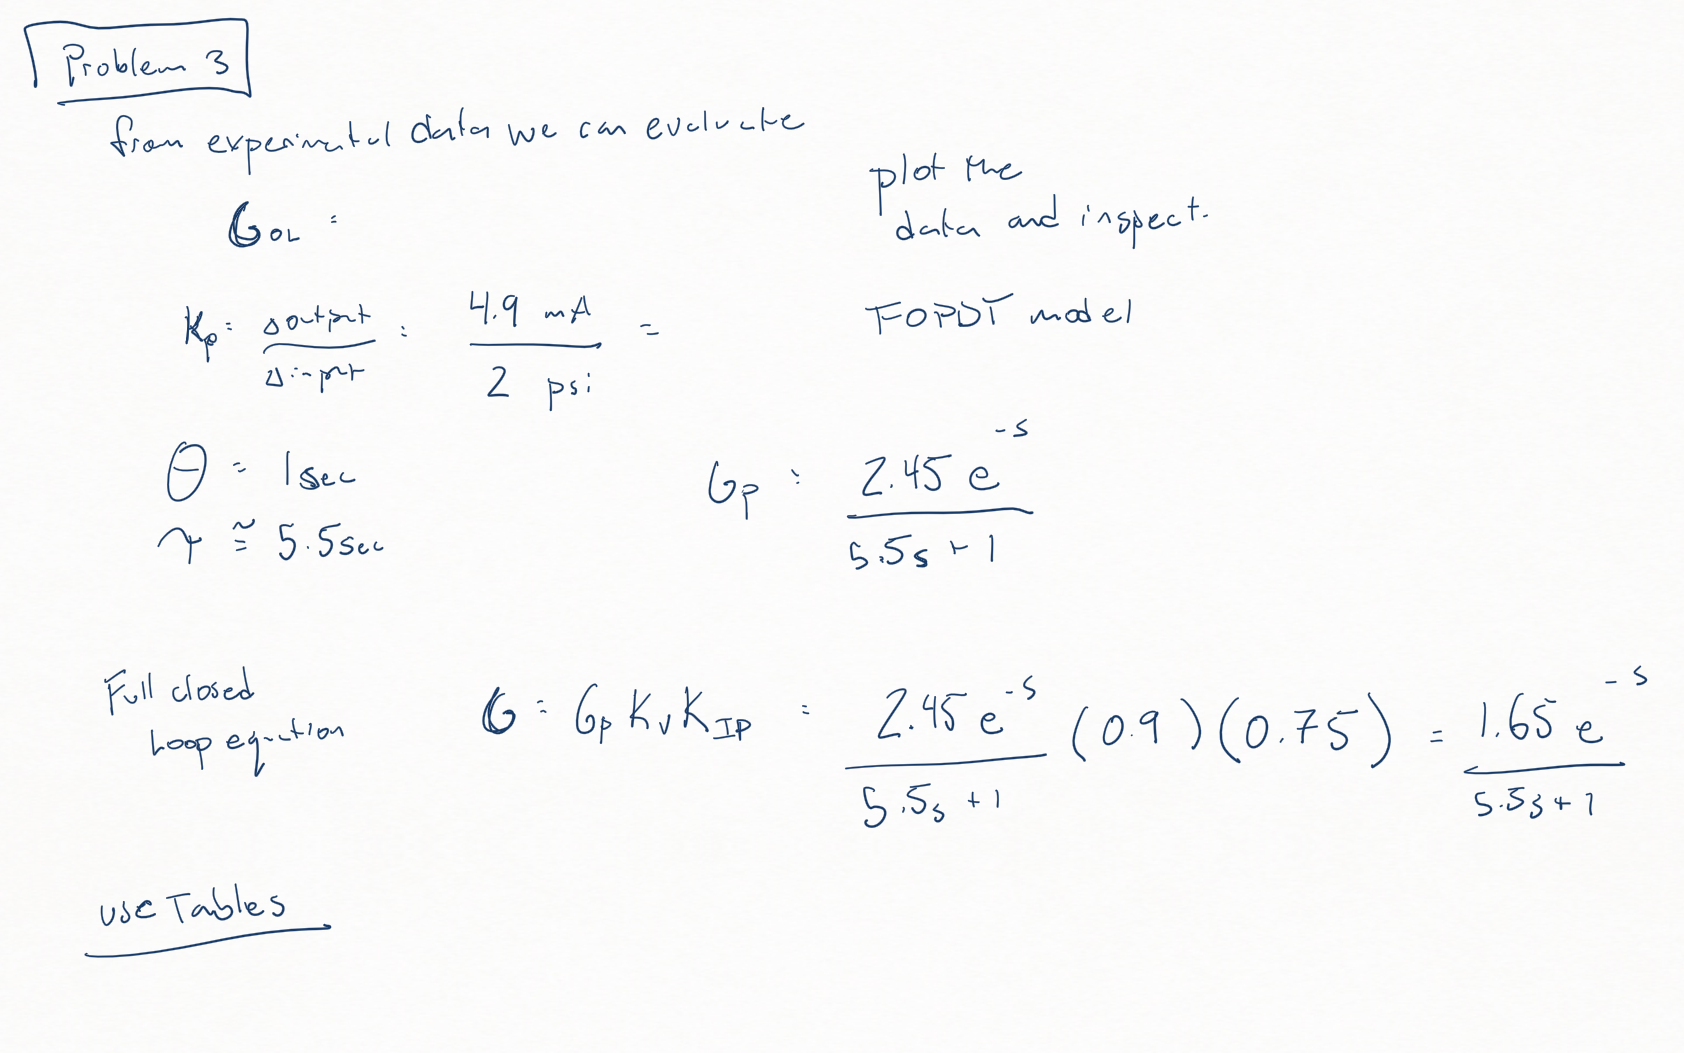 Problem 3
from experimental data we can evaluate
plot the
data and inspect.
G_OL =
K_p = Δoutput / Δinput = 4.9 mA / 2 psi =
FOPDT model
θ = 1sec
τ ≅ 5.5sec
G_p = 2.45 e^-s / 5.5s + 1
Full closed
Loop equation
G = G_p K_v K_IP = 2.45 e^-s / 5.5s + 1 (0.9)(0.75) = 1.65 e^-s / 5.5s + 1
use Tables